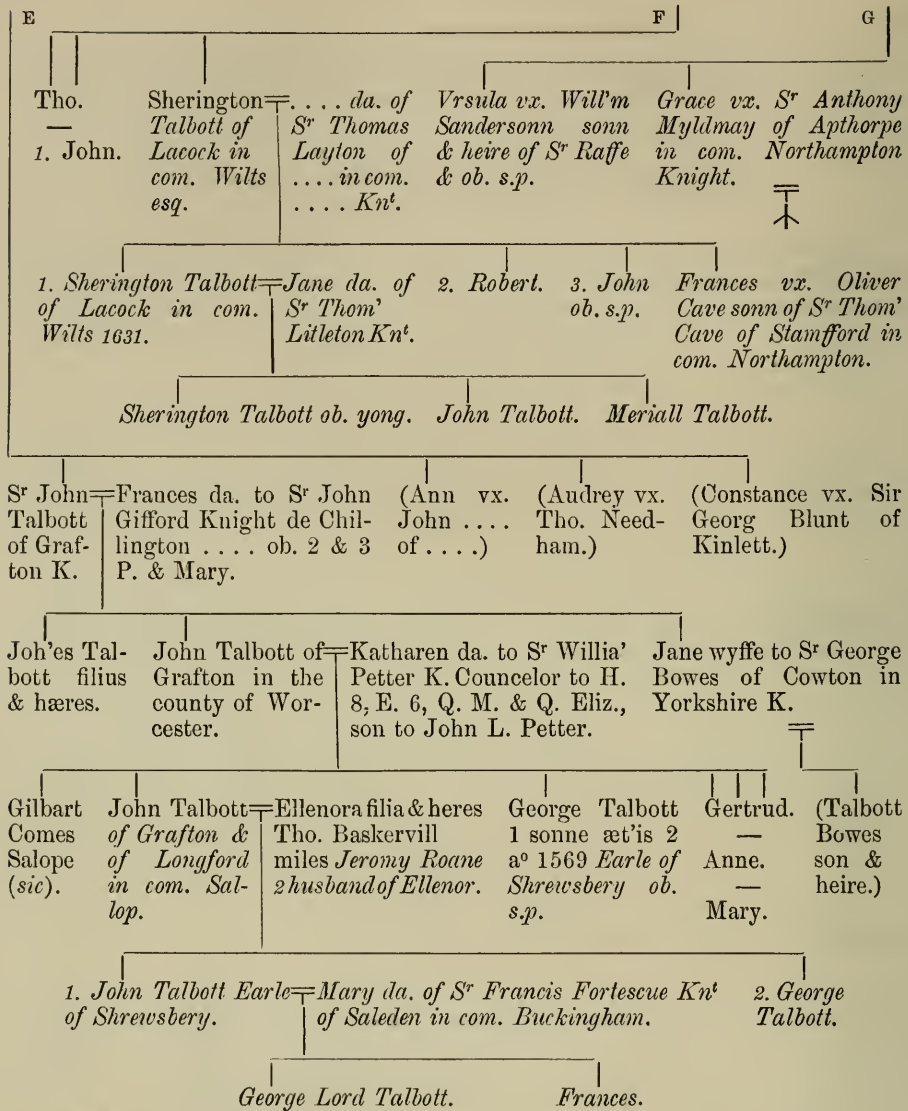 E F G
Tho.
—
1. John.
Sherington
Talbott of
Lacock in
com. Wilts
esq.
. . . . da. of
Sr Thomas
Layton of
. . . . in com.
. . . . Knt.
Vrsula vx. Will'm
Sandersonn sonn
& heire of Sr Raffe
& ob. s.p.
Grace vx. Sr Anthony
Myldmay of Apthorpe
in com. Northampton
Knight.
1. Sherington Talbott
of Lacock in com.
Wilts 1631.
Jane da. of
Sr Thom'
Litleton Knt.
2. Robert.
3. John
ob. s.p.
Frances vx. Oliver
Cave sonn of Sr Thom'
Cave of Stamfford in
com. Northampton.
Sherington Talbott ob. yong. John Talbott. Meriall Talbott.
Sr John
Talbott
of Graf-
ton K.
Frances da. to Sr John
Gifford Knight de Chil-
lington . . . . ob. 2 & 3
P. & Mary.
(Ann vx.
John . . . .
of . . . .)
(Audrey vx.
Tho. Need-
ham.)
(Constance vx. Sir
Georg Blunt of
Kinlett.)
Joh'es Tal-
bott filius
& hæres.
John Talbott of
Grafton in the
county of Wor-
cester.
Katharen da. to Sr Willia'
Petter K. Councelor to H.
8, E. 6, Q. M. & Q. Eliz.,
son to John L. Petter.
Jane wyffe to Sr George
Bowes of Cowton in
Yorkshire K.
Gilbart
Comes
Salope
(sic).
John Talbott
of Grafton &
of Longford
in com. Sal-
lop.
Ellenora filia & heres
Tho. Baskervill
miles Jeromy Roane
2 husband of Ellenor.
George Talbott
1 sonne æt'is 2
ao 1569 Earle of
Shrewsbery ob.
s.p.
Gertrud.
—
Anne.
—
Mary.
(Talbott
Bowes
son &
heire.)
1. John Talbott Earle
of Shrewsbery.
Mary da. of Sr Francis Fortescue Knt
of Saleden in com. Buckingham.
2. George
Talbott.
George Lord Talbott. Frances.